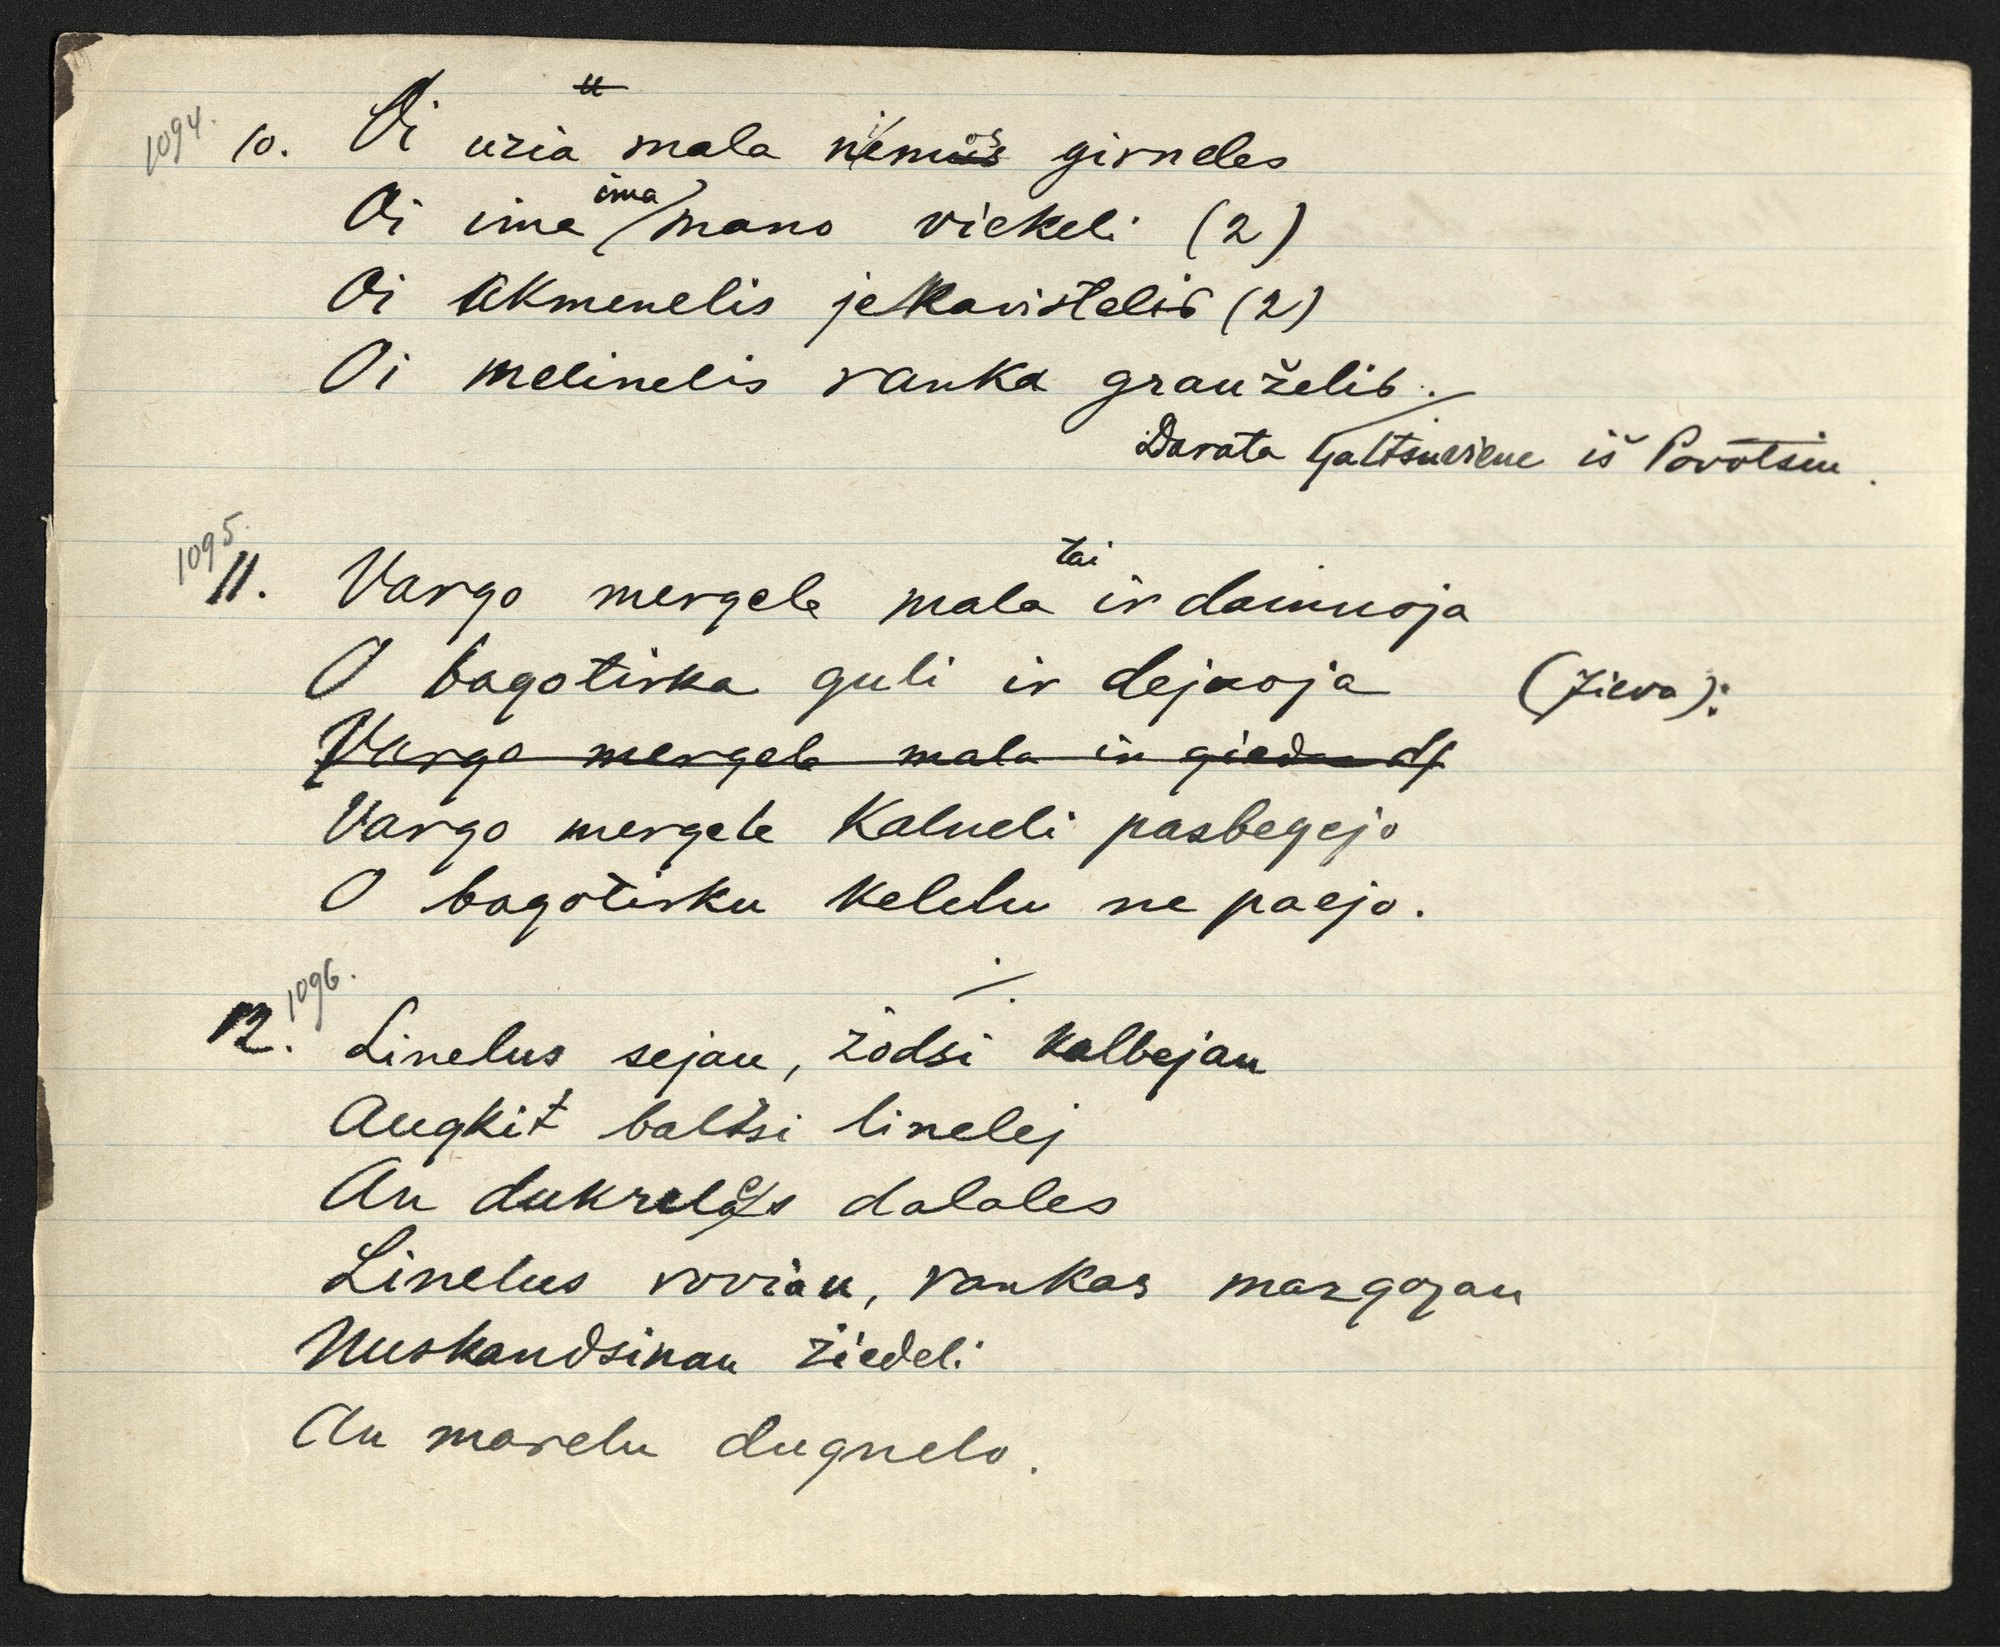 1094. 10. Oi uzia mala girneles
Oi ima ima mano viekeli (2)
Oi akmenelis jekavistelis (2)
Oi melinelis ranka graužélis ./.
Darata Galtsuviene iš Povotsiu.
1095. 11. Vargo mergele mala tai ir dainuoja
O bagotirka guli ir dejuoja (žieva):
Vargo mergele mala ir
Vargo mergele kalneli pasbegejo
O bagotirku kelelu ne paejo.
./.
1096. 12. Linelus sejau, žodsi kalbejau
Augkit baltsi linelej
An dukreles dalales
Linelus roviau, rankas mazgojau
Nuskandsinau žiedeli
An marelu dugnelo.